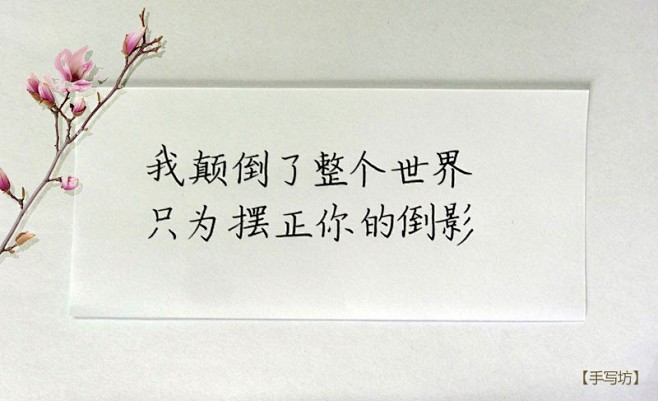 我颠倒了整个世界
只为摆正你的倒影
【手写坊】